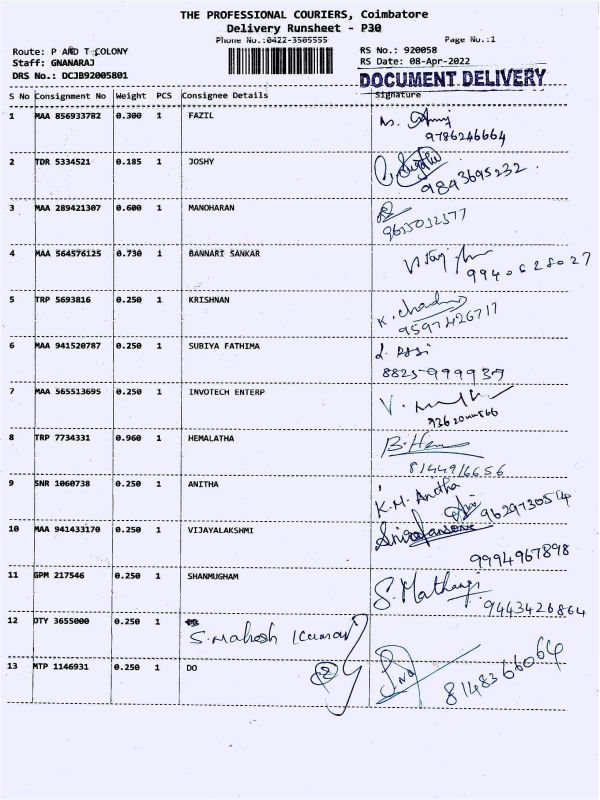 THE PROFESSIONAL COURIERS, Coimbatore
Delivery Runsheet - P30
Phone No.:0422-3505555 Page No.:1
Route: P AND T COLONY RS No.: 920058
Staff: GNANARAJ RS Date: 08-Apr-2022
DRS No.: DCJB92005801 DOCUMENT DELIVERY
S No Consignment No Weight PCS Consignee Details Signature
1 MAA 856933782 0.300 1 FAZIL
9786246664
2 TDR 5334521 0.185 1 JOSHY
9843695232
3 MAA 289421307 0.600 1 MANOHARAN
9655032377
4 MAA 564576125 0.730 1 BANNARI SANKAR
9940628027
5 TRP 5693816 0.250 1 KRISHNAN
9597426717
6 MAA 941520787 0.250 1 SUBIYA FATHIMA
8825999939
7 MAA 565513695 0.250 1 INVOTECH ENTERP
8 TRP 7734331 0.960 1 HEMALATHA B. Hem
8144916656
9 SNR 1060738 0.250 1 ANITHA K.M. Anitha
9629730504
10 MAA 941433170 0.250 1 VIJAYALAKSHMI
9994967898
11 GPM 217546 0.250 1 SHANMUGHAM S. Mathangi
9443426864
12 OTY 3655000 0.250 1 S. Mahesh Kumar
13 MTP 1146931 0.250 1 DO 2
8148366064